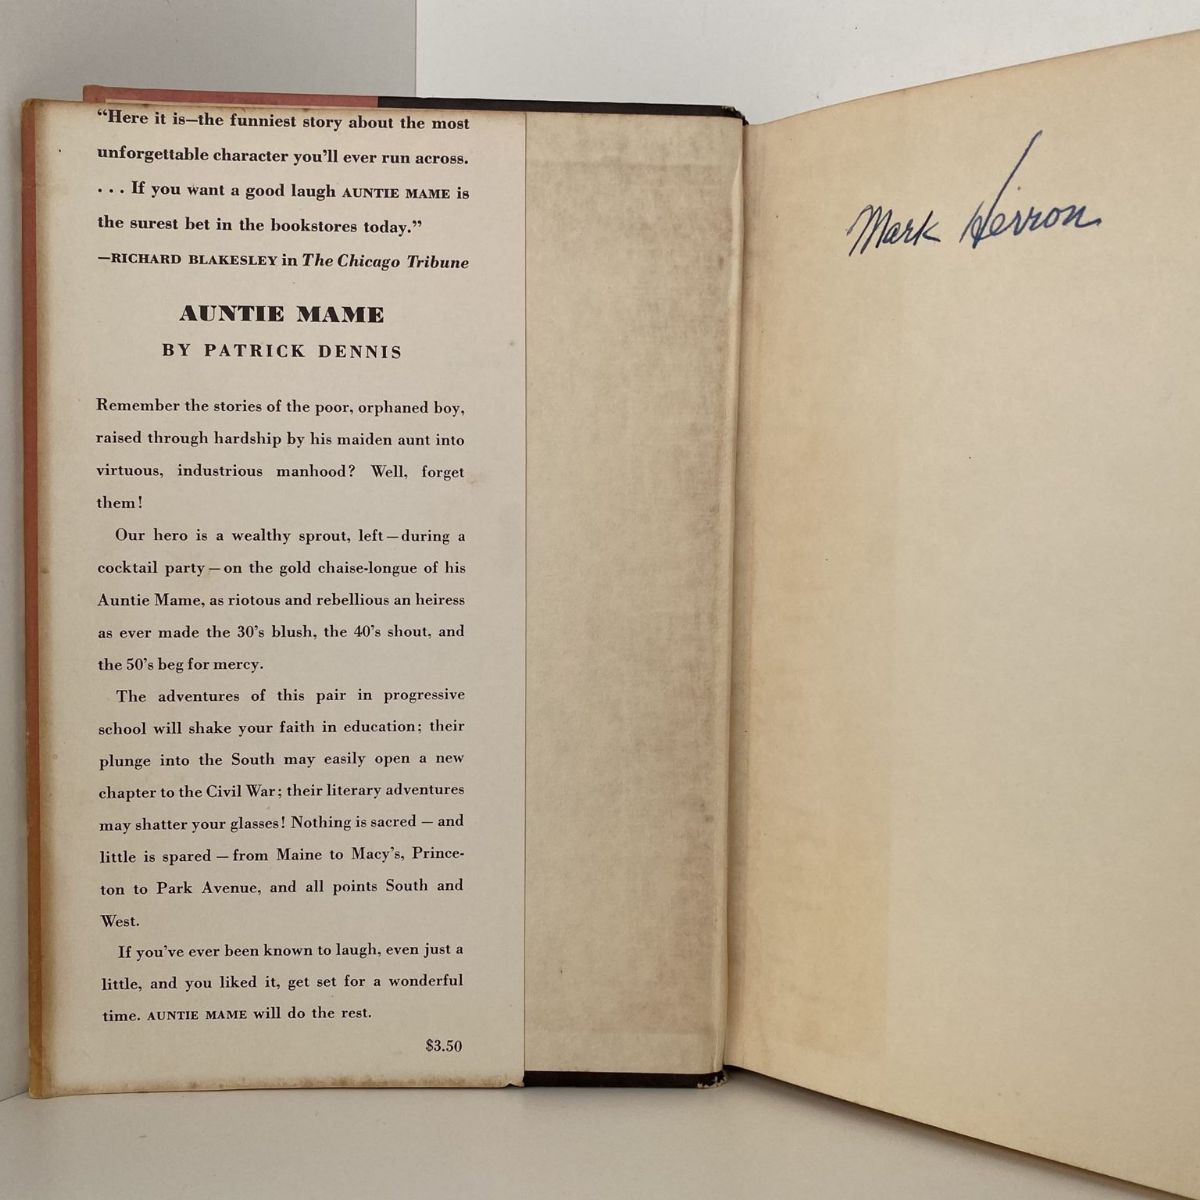 “Here it is—the funniest story about the most
unforgettable character you’ll ever run across.
. . . If you want a good laugh AUNTIE MAME is
the surest bet in the bookstores today.”
—RICHARD BLAKESLEY in The Chicago Tribune
AUNTIE MAME
BY PATRICK DENNIS
Remember the stories of the poor, orphaned boy,
raised through hardship by his maiden aunt into
virtuous, industrious manhood? Well, forget
them!
Our hero is a wealthy sprout, left—during a
cocktail party—on the gold chaise-longue of his
Auntie Mame, as riotous and rebellious an heiress
as ever made the 30’s blush, the 40’s shout, and
the 50’s beg for mercy.
The adventures of this pair in progressive
school will shake your faith in education; their
plunge into the South may easily open a new
chapter to the Civil War; their literary adventures
may shatter your glasses! Nothing is sacred — and
little is spared — from Maine to Macy’s, Prince-
ton to Park Avenue, and all points South and
West.
If you’ve ever been known to laugh, even just a
little, and you liked it, get set for a wonderful
time. AUNTIE MAME will do the rest.
$3.50
Mark Herron